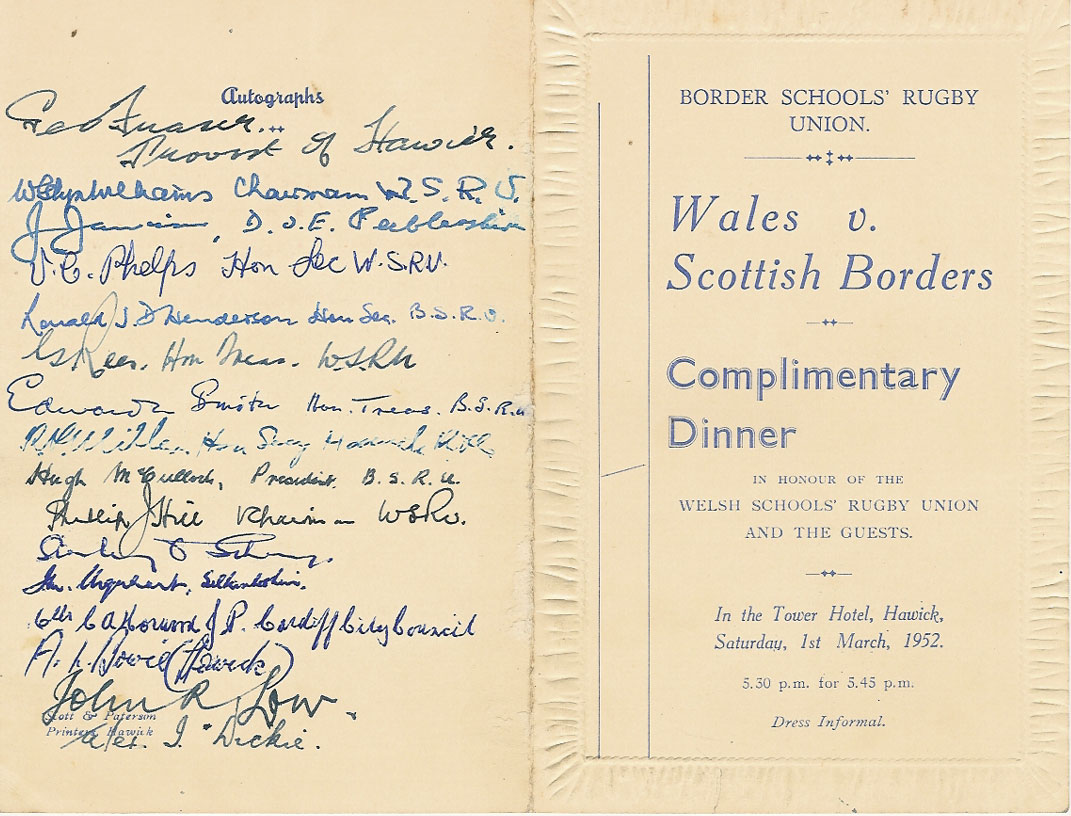 Autographs
Geo Fraser.
Provost of Hawick.
Chairman W.S.R.U.
J , D.O.E. Peeblesshire
V. C. Phelps Hon Sec W.S.R.U.
Ronald J. D Henderson Hon Sec. B.S.R.U.
Rees. Hon Treas. W.S.R.U
Edward Smith Hon. Treas. B.S.R.U
Hon Secy
Hugh McCulloch, President. B.S.R.U.
Phillip J Hill W.S.R.U.
Stanley
Urquhart, Selkirkshire.
J.P. Cardiff City Council
A. L. Bowie (Hawick)
John R Low.
Scott & Paterson
Printers, Hawick
Alex. J. Dickie.
BORDER SCHOOLS' RUGBY
UNION.
Wales v.
Scottish Borders
Complimentary
Dinner
IN HONOUR OF THE
WELSH SCHOOLS' RUGBY UNION
AND THE GUESTS.
In the Tower Hotel, Hawick,
Saturday, 1st March, 1952.
5.30 p.m. for 5.45 p.m.
Dress Informal.